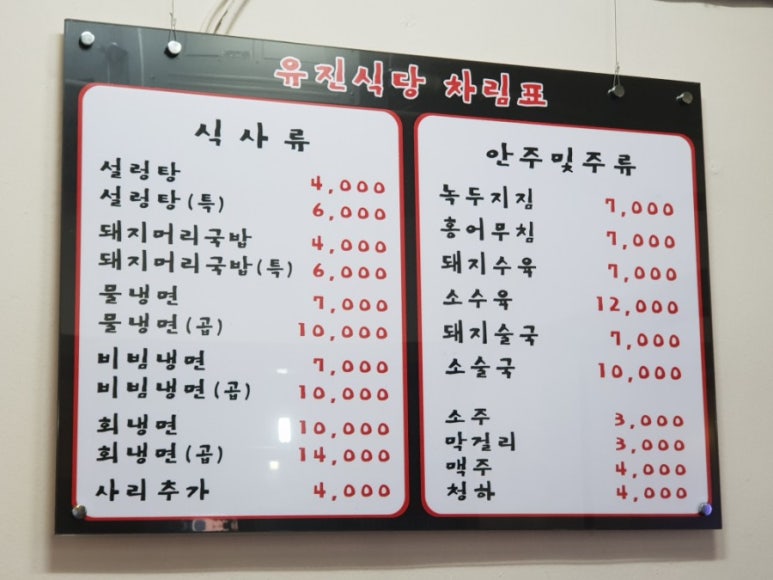 유진식당 차림표
식사류
설렁탕 4,000
설렁탕(특) 6,000
돼지머리국밥 4,000
돼지머리국밥(특) 6,000
물냉면 7,000
물냉면(곱) 10,000
비빔냉면 7,000
비빔냉면(곱) 10,000
회냉면 10,000
회냉면(곱) 14,000
사리추가 4,000
안주및주류
녹두지짐 7,000
홍어무침 7,000
돼지수육 7,000
소수육 12,000
돼지술국 7,000
소술국 10,000
소주 3,000
막걸리 3,000
맥주 4,000
청하 4,000